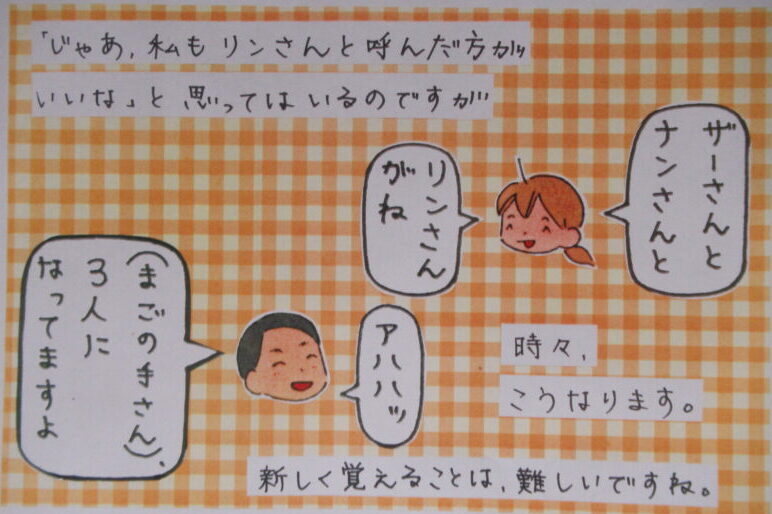 「じゃあ、私もリンさんと呼んだ方が
いいな」と思ってはいるのですが
ザーさんと
ナンさんと
リンさん
がね
アハハッ
(まごの手さん)、
3人に
なってますよ
時々、
こうなります。
新しく覚えることは、難しいですね。